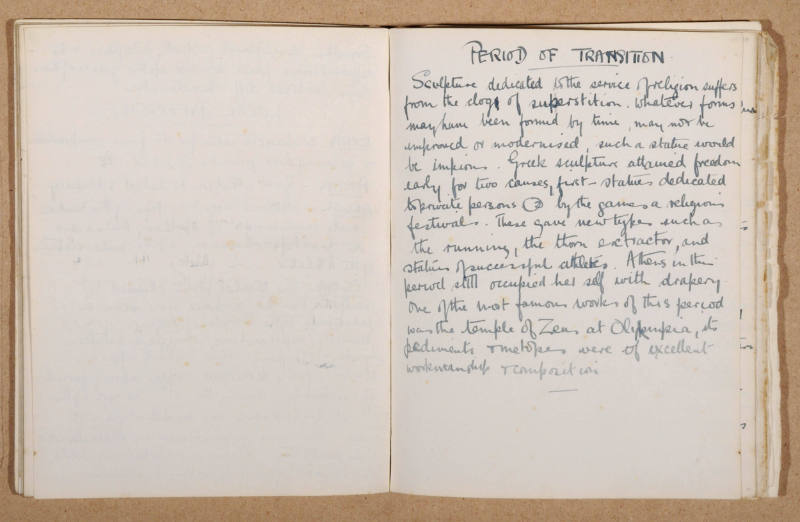 PERIOD OF TRANSITION
Sculpture dedicated to the service of religion suffers
from the clogs of superstition. Whatever forms
may have been formed by time, may not be
improved or modernised, such a statue would
be impious. Greek sculpture attained freedom
early for two causes, first - statues dedicated
to private persons ② by the games & religious
festivals. These gave new types such as
the running, the thorn extractor, and
statues of successful athletes. Athens in this
period still occupied her self with drapery
One of the most famous works of this period
was the temple of Zeus at Olympia, its
pediments & metopes were of excellent
workmanship & composition